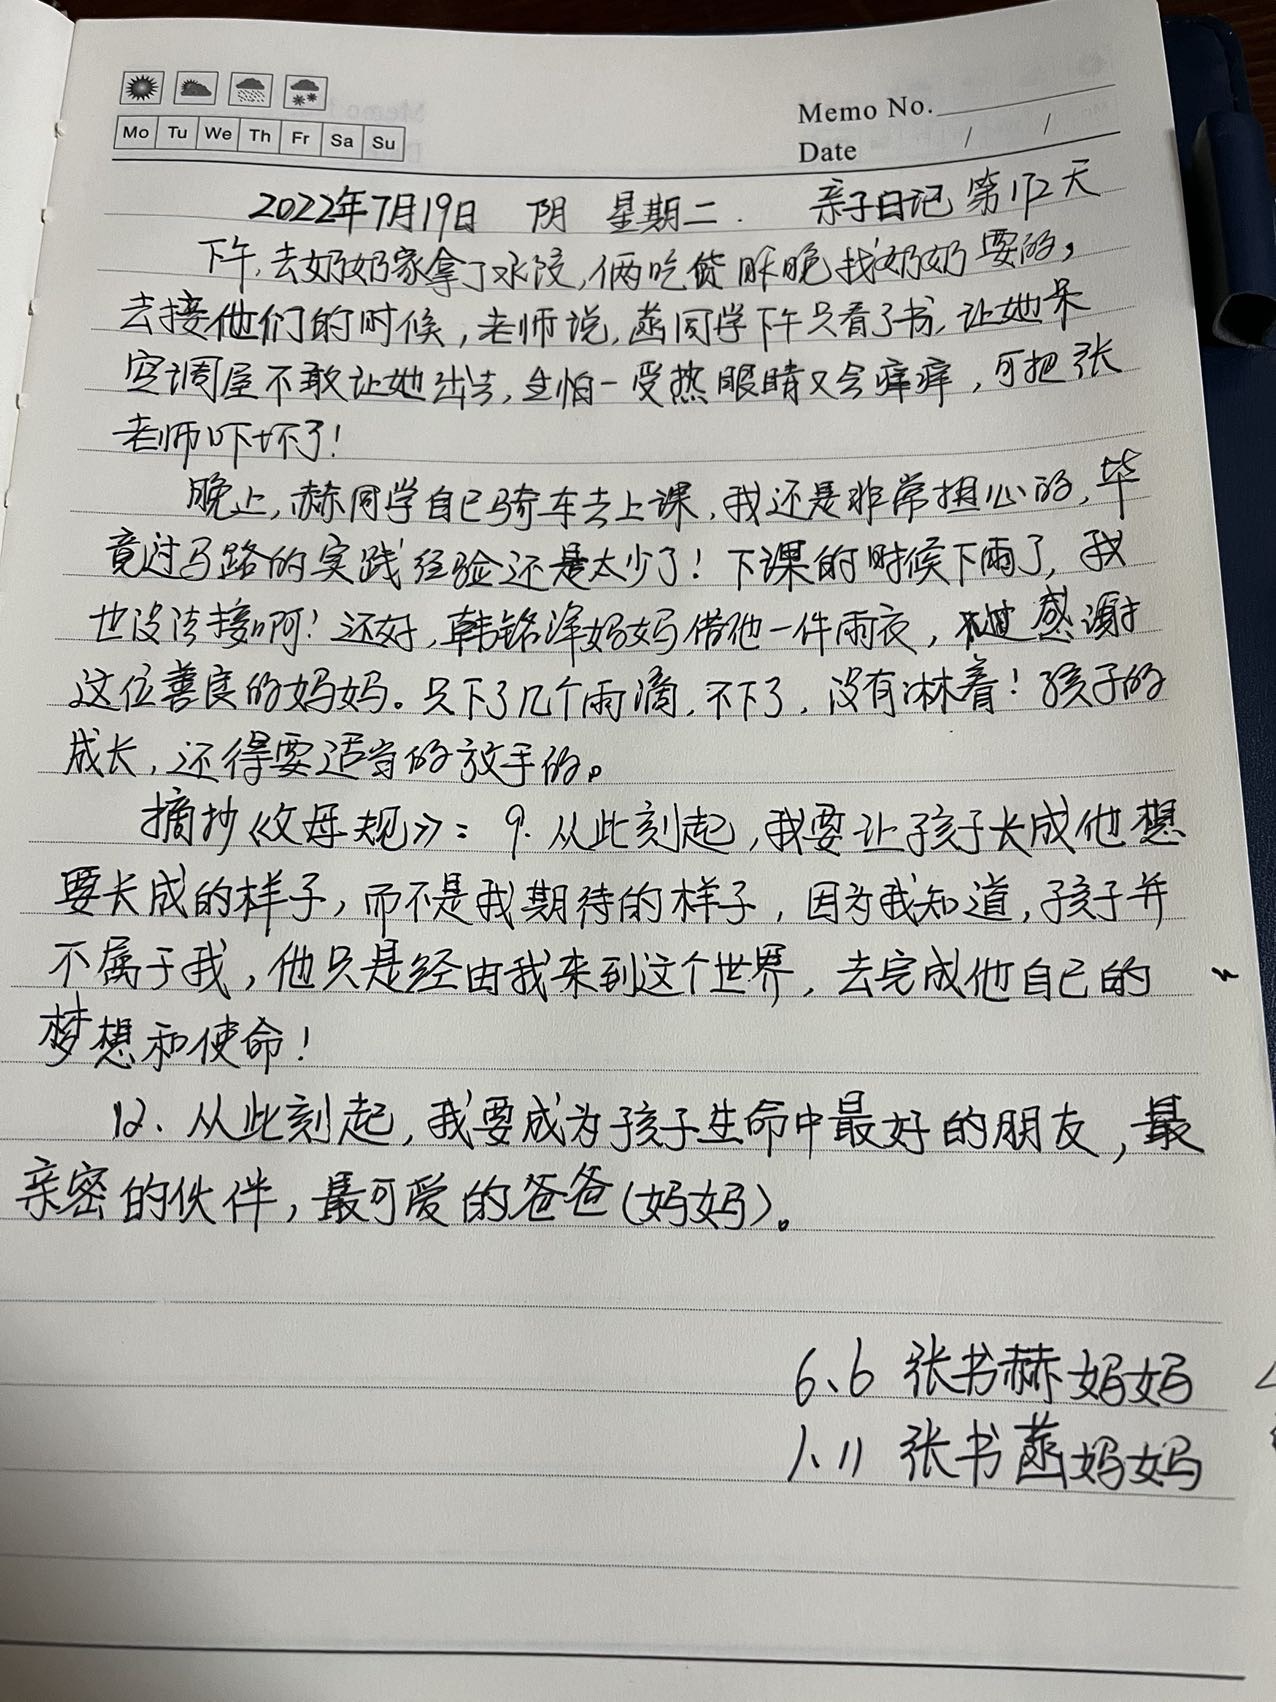 Mo Tu We Th Fr Sa Su
Memo No.
Date / /
2022年7月19日 阴 星期二. 亲子日记 第172天
下午,去奶奶家拿了水饺,俩吃货昨晚找奶奶要的,
去接他们的时候,老师说,菡同学下午只看了书,让她呆
空调屋不敢让她出去,生怕一受热眼睛又会痒痒,可把张
老师吓坏了!
晚上,赫同学自己骑车去上课,我还是非常担心的,毕
竟过马路的实践经验还是太少了!下课的时候下雨了,我
也没法接啊!还好,韩铭泽妈妈借他一件雨衣,感谢
这位善良的妈妈。只下了几个雨滴,不下了,没有淋着!孩子的
成长,还得要适当的放手的。
摘抄《父母规》:9.从此刻起,我要让孩子长成他想
要长成的样子,而不是我期待的样子,因为我知道,孩子并
不属于我,他只是经由我来到这个世界,去完成他自己的
梦想和使命!
12.从此刻起,我要成为孩子生命中最好的朋友,最
亲密的伙伴,最可爱的爸爸(妈妈)。
6.6 张书赫妈妈
1.11 张书菡妈妈